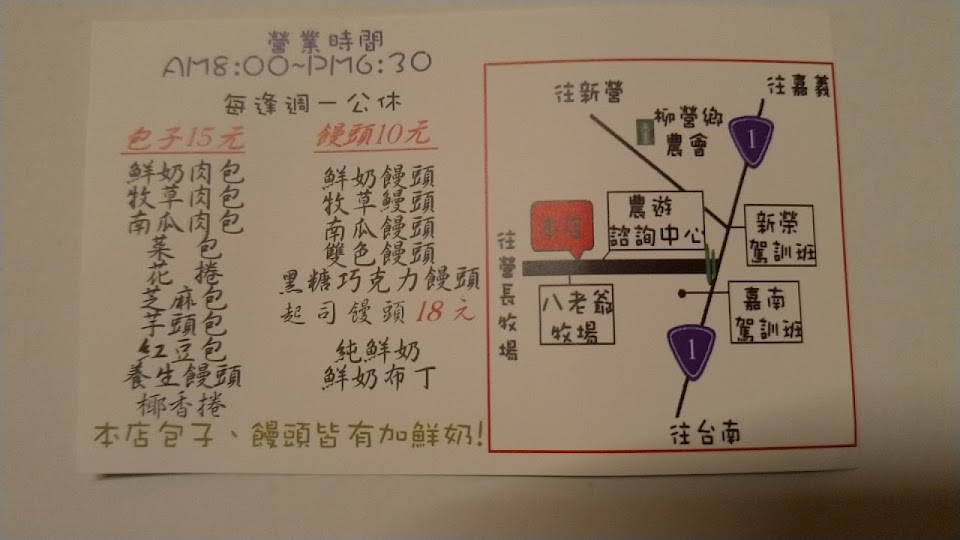 營業時間
AM8:00~PM6:30
每逢週一公休
包子15元
鮮奶肉包
牧草肉包
南瓜肉包
菜 包
花 捲
芝麻包
芋頭包
紅豆包
養生饅頭
椰香捲
饅頭10元
鮮奶饅頭
牧草鰻頭
南瓜饅頭
雙色饅頭
黑糖巧克力饅頭
起司饅頭18元
純鮮奶
鮮奶布丁
本店包子、饅頭皆有加鮮奶!
往新營
柳營鄉
農會
往嘉義
1
本店
農遊
諮詢中心
新榮
駕訓班
往營長牧場
八老爺
牧場
嘉南
駕訓班
1
往台南